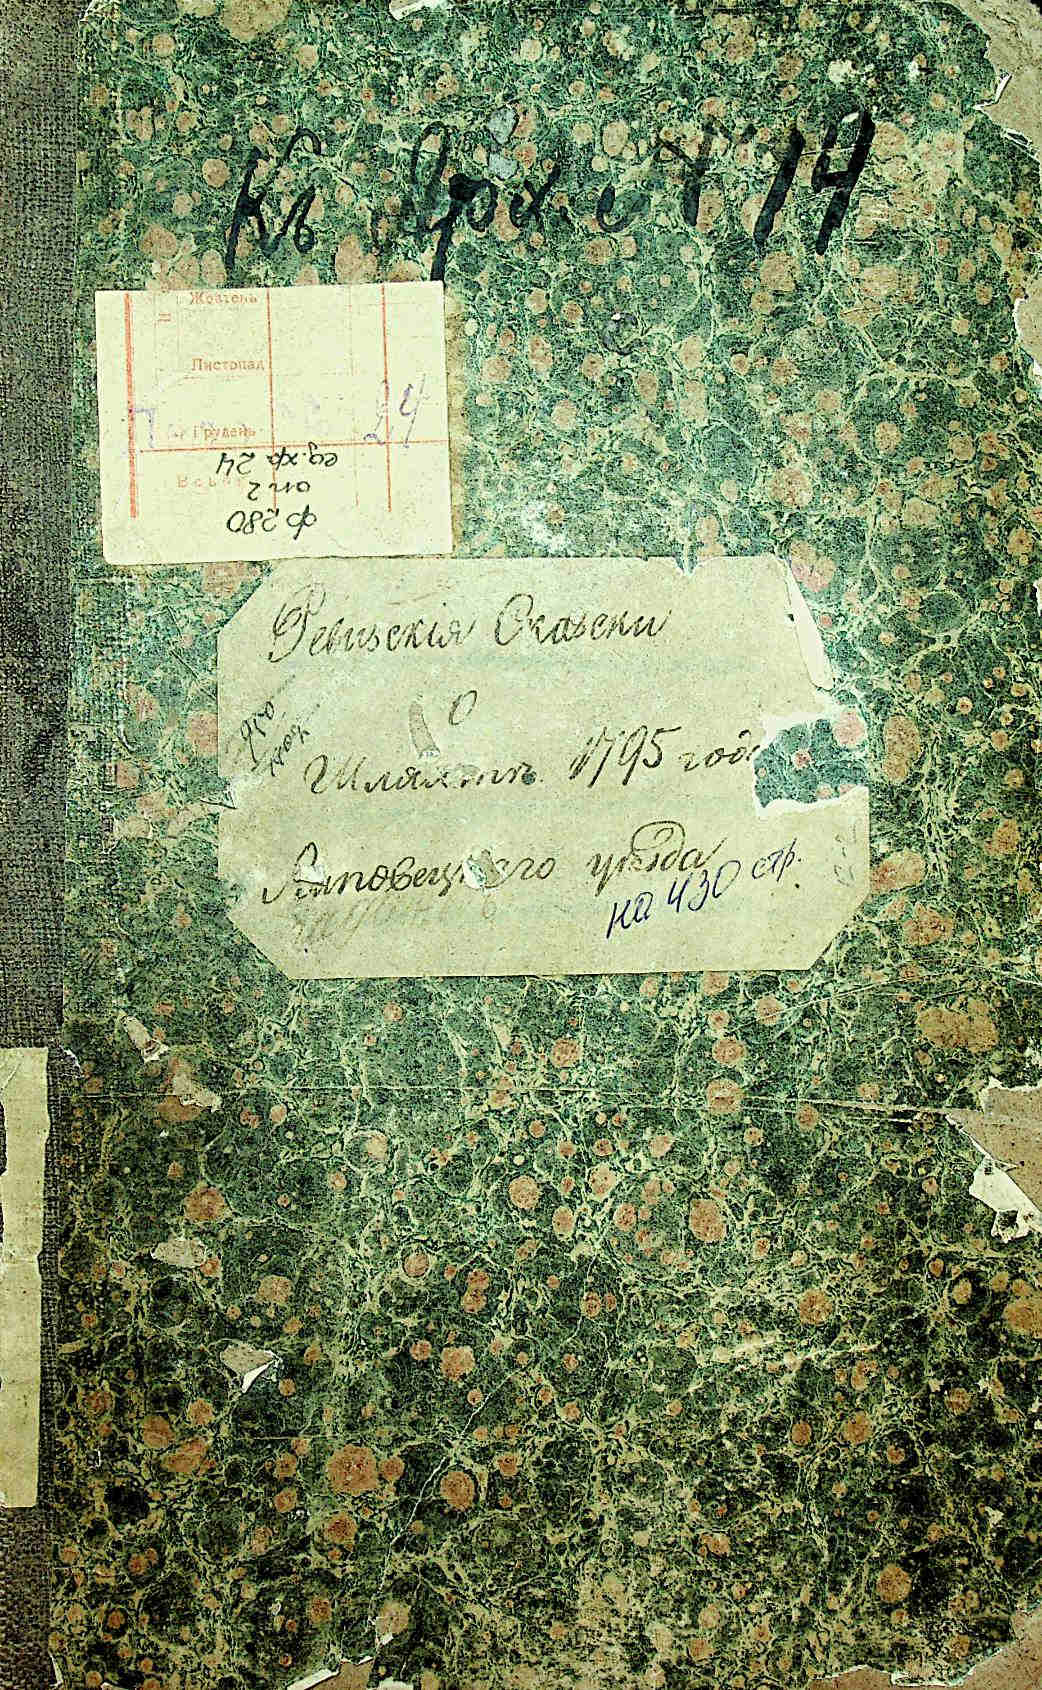 Къ Арх. 14
Жовтень
Листопад
Грудень
24
ф 280
оп 2
ед. хр 24
Ревизскія Сказски
О
Шляхтъ 1795 года
Липовецкого уезда
на 430 стр.